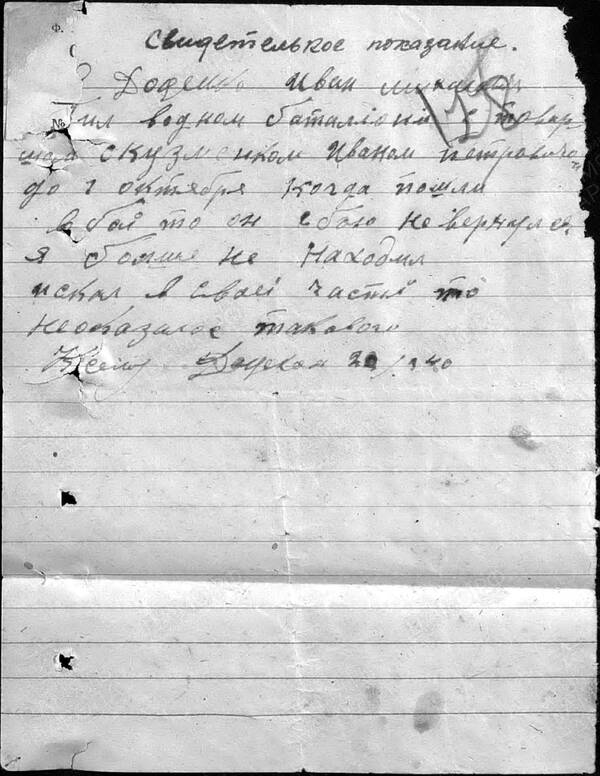 свидетелькое показание.
128
Доденко Иван
был водном баталіони с товар
ищом скузменком Иваном петровичом
до 1 октября когда пошли
в бой то он с бою не вернулся
я больше не находил
искал в своеі часты то
неоказалос такового